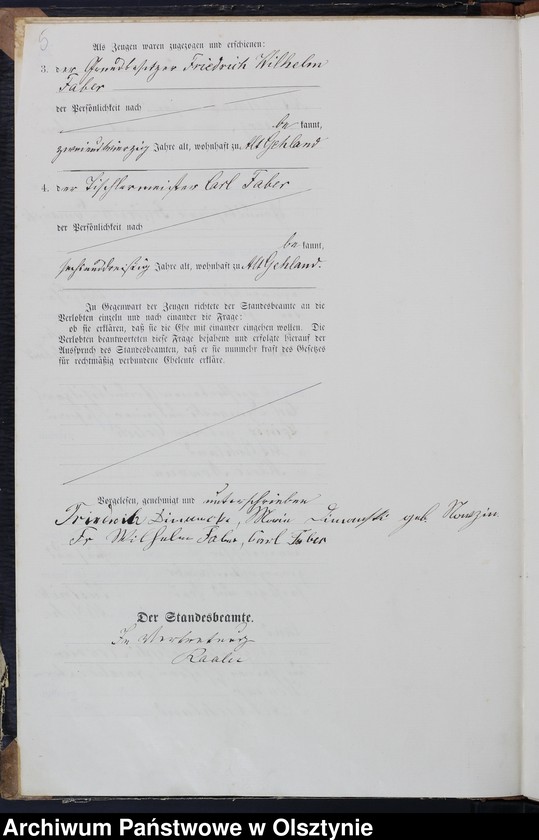 5
Als Zeugen waren zugezogen und erschienen:
3. der Grundbesitzer Friedrich Wilhelm
Faber
der Persönlichkeit nach
be kannt,
zweiundvierzig Jahre alt, wohnhaft zu Alt Gehland
4. der Tischlermeister Carl Faber
der Persönlichkeit nach
be kannt,
sechsunddreißig Jahre alt, wohnhaft zu Alt Gehland.
In Gegenwart der Zeugen richtete der Standesbeamte an die
Verlobten einzeln und nach einander die Frage:
ob sie erklären, daß sie die Ehe mit einander eingehen wollen. Die
Verlobten beantworteten diese Frage bejahend und erfolgte hierauf der
Ausspruch des Standesbeamten, daß er sie nunmehr kraft des Gesetzes
für rechtmäßig verbundene Eheleute erkläre.
Vorgelesen, genehmigt und unterschrieben
Friedrich, Marie geb.
Fr Wilhelm Faber, Carl Faber
Der Standesbeamte.
In Vertretung
Archiwum Państwowe w Olsztynie